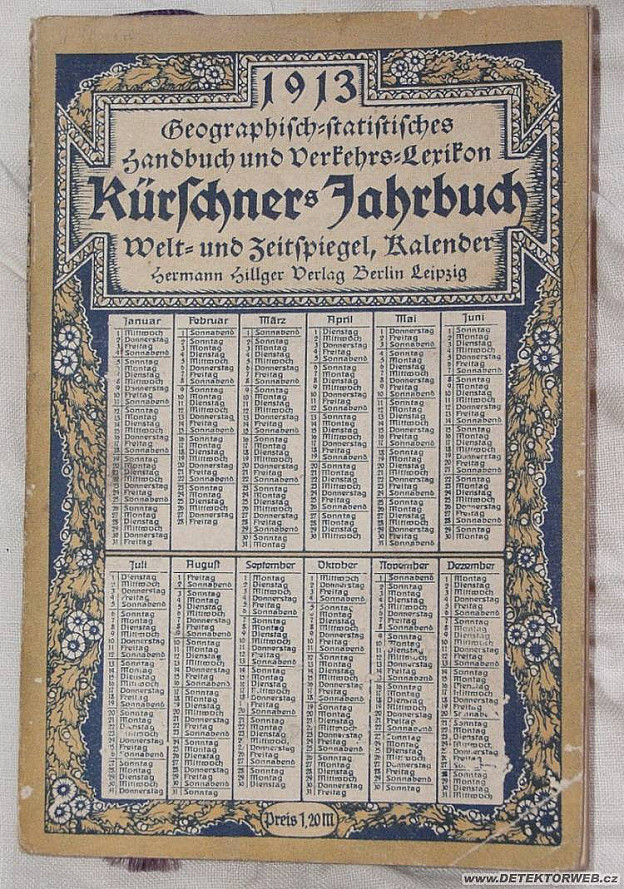 1913
Geographisch=statistisches
Handbuch und Verkehrs=Lexikon
Kürschners Jahrbuch
Welt= und Zeitspiegel, Kalender
Hermann Hillger Verlag Berlin Leipzig
Januar
1 Mittwoch
2 Donnerstag
3 Freitag
4 Sonnabend
5 Sonntag
6 Montag
7 Dienstag
8 Mittwoch
9 Donnerstag
10 Freitag
11 Sonnabend
12 Sonntag
13 Montag
14 Dienstag
15 Mittwoch
16 Donnerstag
17 Freitag
18 Sonnabend
19 Sonntag
20 Montag
21 Dienstag
22 Mittwoch
23 Donnerstag
24 Freitag
25 Sonnabend
26 Sonntag
27 Montag
28 Dienstag
29 Mittwoch
30 Donnerstag
31 Freitag
Februar
1 Sonnabend
2 Sonntag
3 Montag
4 Dienstag
5 Mittwoch
6 Donnerstag
7 Freitag
8 Sonnabend
9 Sonntag
10 Montag
11 Dienstag
12 Mittwoch
13 Donnerstag
14 Freitag
15 Sonnabend
16 Sonntag
17 Montag
18 Dienstag
19 Mittwoch
20 Donnerstag
21 Freitag
22 Sonnabend
23 Sonntag
24 Montag
25 Dienstag
26 Mittwoch
27 Donnerstag
28 Freitag
März
1 Sonnabend
2 Sonntag
3 Montag
4 Dienstag
5 Mittwoch
6 Donnerstag
7 Freitag
8 Sonnabend
9 Sonntag
10 Montag
11 Dienstag
12 Mittwoch
13 Donnerstag
14 Freitag
15 Sonnabend
16 Sonntag
17 Montag
18 Dienstag
19 Mittwoch
20 Donnerstag
21 Freitag
22 Sonnabend
23 Sonntag
24 Montag
25 Dienstag
26 Mittwoch
27 Donnerstag
28 Freitag
29 Sonnabend
30 Sonntag
31 Montag
April
1 Dienstag
2 Mittwoch
3 Donnerstag
4 Freitag
5 Sonnabend
6 Sonntag
7 Montag
8 Dienstag
9 Mittwoch
10 Donnerstag
11 Freitag
12 Sonnabend
13 Sonntag
14 Montag
15 Dienstag
16 Mittwoch
17 Donnerstag
18 Freitag
19 Sonnabend
20 Sonntag
21 Montag
22 Dienstag
23 Mittwoch
24 Donnerstag
25 Freitag
26 Sonnabend
27 Sonntag
28 Montag
29 Dienstag
30 Mittwoch
Mai
1 Donnerstag
2 Freitag
3 Sonnabend
4 Sonntag
5 Montag
6 Dienstag
7 Mittwoch
8 Donnerstag
9 Freitag
10 Sonnabend
11 Sonntag
12 Montag
13 Dienstag
14 Mittwoch
15 Donnerstag
16 Freitag
17 Sonnabend
18 Sonntag
19 Montag
20 Dienstag
21 Mittwoch
22 Donnerstag
23 Freitag
24 Sonnabend
25 Sonntag
26 Montag
27 Dienstag
28 Mittwoch
29 Donnerstag
30 Freitag
31 Sonnabend
Juni
1 Sonntag
2 Montag
3 Dienstag
4 Mittwoch
5 Donnerstag
6 Freitag
7 Sonnabend
8 Sonntag
9 Montag
10 Dienstag
11 Mittwoch
12 Donnerstag
13 Freitag
14 Sonnabend
15 Sonntag
16 Montag
17 Dienstag
18 Mittwoch
19 Donnerstag
20 Freitag
21 Sonnabend
22 Sonntag
23 Montag
24 Dienstag
25 Mittwoch
26 Donnerstag
27 Freitag
28 Sonnabend
29 Sonntag
30 Montag
Juli
1 Dienstag
2 Mittwoch
3 Donnerstag
4 Freitag
5 Sonnabend
6 Sonntag
7 Montag
8 Dienstag
9 Mittwoch
10 Donnerstag
11 Freitag
12 Sonnabend
13 Sonntag
14 Montag
15 Dienstag
16 Mittwoch
17 Donnerstag
18 Freitag
19 Sonnabend
20 Sonntag
21 Montag
22 Dienstag
23 Mittwoch
24 Donnerstag
25 Freitag
26 Sonnabend
27 Sonntag
28 Montag
29 Dienstag
30 Mittwoch
31 Donnerstag
August
1 Freitag
2 Sonnabend
3 Sonntag
4 Montag
5 Dienstag
6 Mittwoch
7 Donnerstag
8 Freitag
9 Sonnabend
10 Sonntag
11 Montag
12 Dienstag
13 Mittwoch
14 Donnerstag
15 Freitag
16 Sonnabend
17 Sonntag
18 Montag
19 Dienstag
20 Mittwoch
21 Donnerstag
22 Freitag
23 Sonnabend
24 Sonntag
25 Montag
26 Dienstag
27 Mittwoch
28 Donnerstag
29 Freitag
30 Sonnabend
31 Sonntag
September
1 Montag
2 Dienstag
3 Mittwoch
4 Donnerstag
5 Freitag
6 Sonnabend
7 Sonntag
8 Montag
9 Dienstag
10 Mittwoch
11 Donnerstag
12 Freitag
13 Sonnabend
14 Sonntag
15 Montag
16 Dienstag
17 Mittwoch
18 Donnerstag
19 Freitag
20 Sonnabend
21 Sonntag
22 Montag
23 Dienstag
24 Mittwoch
25 Donnerstag
26 Freitag
27 Sonnabend
28 Sonntag
29 Montag
30 Dienstag
Oktober
1 Mittwoch
2 Donnerstag
3 Freitag
4 Sonnabend
5 Sonntag
6 Montag
7 Dienstag
8 Mittwoch
9 Donnerstag
10 Freitag
11 Sonnabend
12 Sonntag
13 Montag
14 Dienstag
15 Mittwoch
16 Donnerstag
17 Freitag
18 Sonnabend
19 Sonntag
20 Montag
21 Dienstag
22 Mittwoch
23 Donnerstag
24 Freitag
25 Sonnabend
26 Sonntag
27 Montag
28 Dienstag
29 Mittwoch
30 Donnerstag
31 Freitag
November
1 Sonnabend
2 Sonntag
3 Montag
4 Dienstag
5 Mittwoch
6 Donnerstag
7 Freitag
8 Sonnabend
9 Sonntag
10 Montag
11 Dienstag
12 Mittwoch
13 Donnerstag
14 Freitag
15 Sonnabend
16 Sonntag
17 Montag
18 Dienstag
19 Mittwoch
20 Donnerstag
21 Freitag
22 Sonnabend
23 Sonntag
24 Montag
25 Dienstag
26 Mittwoch
27 Donnerstag
28 Freitag
29 Sonnabend
30 Sonntag
Dezember
1 Montag
2 Dienstag
3 Mittwoch
4 Donnerstag
5 Freitag
6 Sonnabend
7 Sonntag
8 Montag
9 Dienstag
10 Mittwoch
11 Donnerstag
12 Freitag
13 Sonnabend
14 Sonntag
15 Montag
16 Dienstag
17 Mittwoch
18 Donnerstag
19 Freitag
20 Sonnabend
21 Sonntag
22 Montag
23 Dienstag
24 Mittwoch
25 Donnerstag
26 Freitag
27 So
28 Sonntag
29 Montag
30 Dienstag
31 Mittwoch
Preis 1,20 M
www.DETEKTORWEB.cz